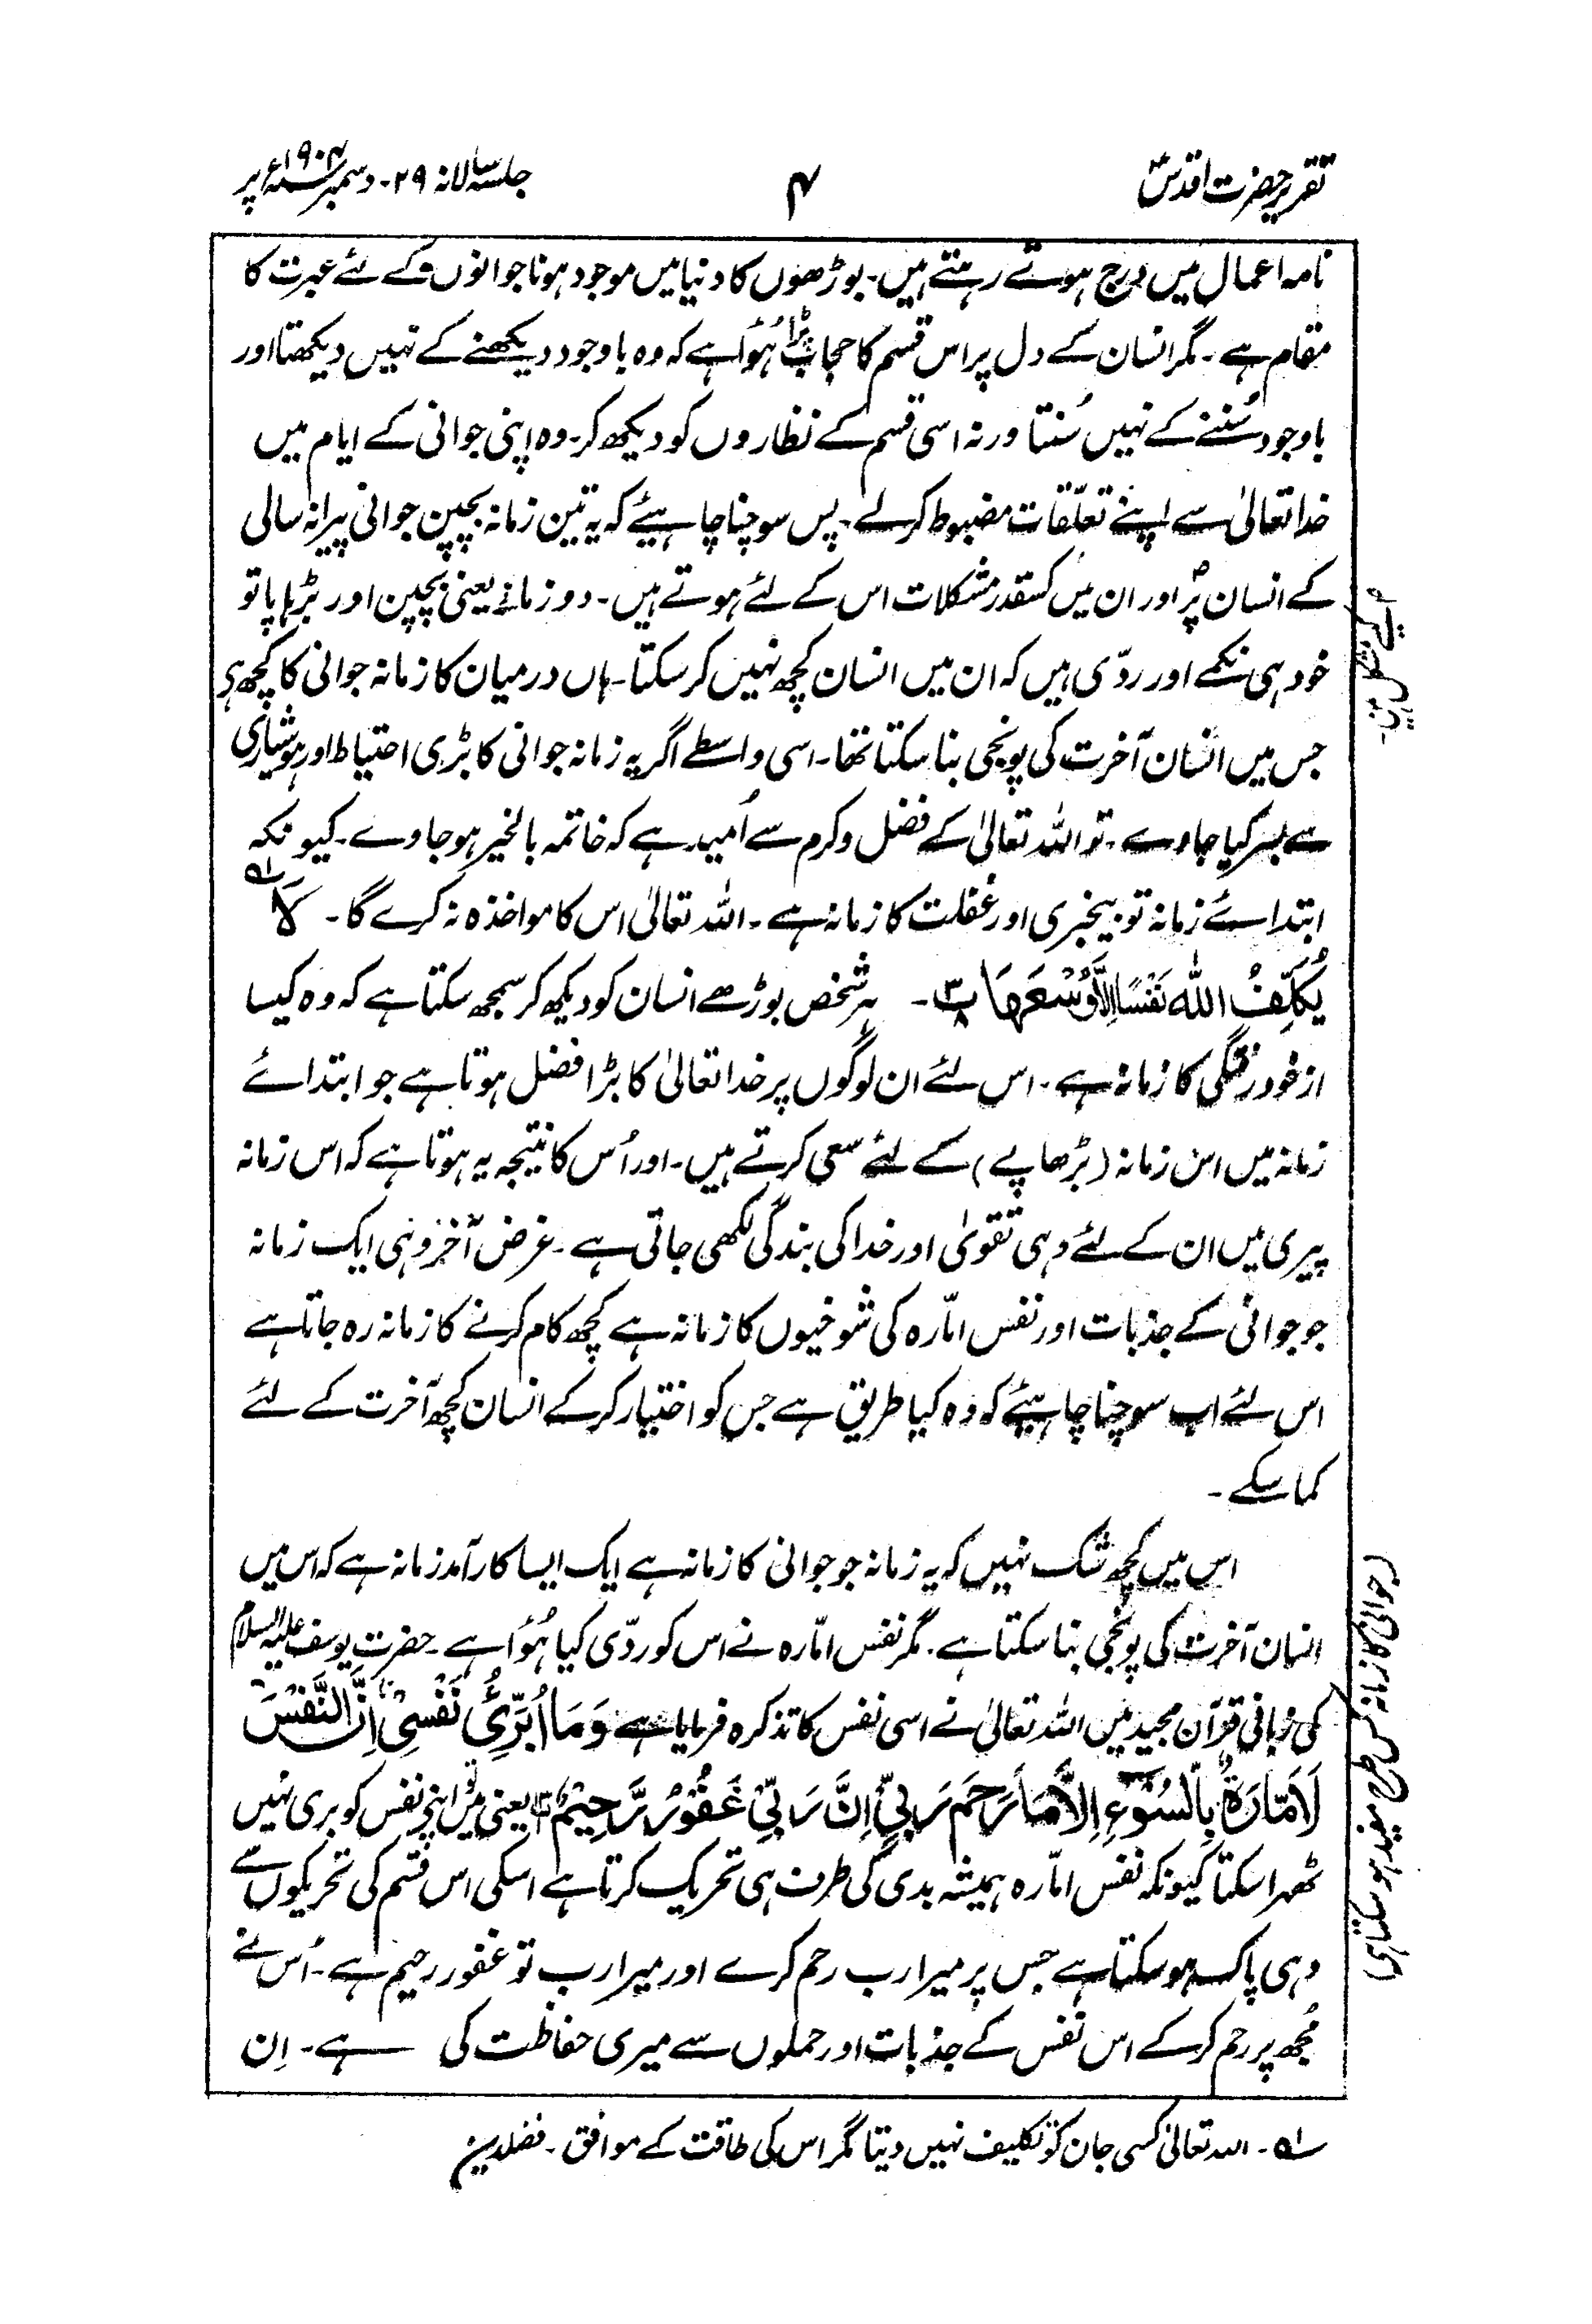 تقریر حضرت اقدسؑ
۴
جلسہ سالانہ ۲۹۔ دسمبر ۱۹۰۴ء پر
نامہ اعمال میں درج ہوتے رہتے ہیں۔ بوڑھوں کا دنیا میں موجود ہونا جوانوں کے لئے عبرت کا
مقام ہے۔ مگر انسان کے دل پر اس قسم کا حجاب پڑا ہُؤا ہے کہ وہ باوجود دیکھنے کے نہیں دیکھتا اور
باوجود سُننے کے نہیں سُنتا ورنہ اسی قسم کے نظاروں کو دیکھ کر۔ وہ اپنی جوانی کے ایام میں
خدا تعالیٰ سے اپنے تعلّقات مضبوط کر لے۔ پس سوچنا چاہیئے کہ یہ تین زمانہ بچپن جوانی پیرانہ سالی
کے انسان پر اور ان میں کسقدر مشکلات اس کے لئے ہوتے ہیں۔ دو زمانے یعنی بچپن اور بڑہاپا تو
خود ہی نکمے اور ردّی ہیں کہ ان میں انسان کچھ نہیں کر سکتا۔ ہاں درمیان کا زمانہ جوانی کا کچھ ہے
جس میں انسان آخرت کی پونجی بنا سکتا تھا۔ اسی واسطے اگر یہ زمانہ جوانی کا بڑی احتیاط اور ہوشیاری
سے بسر کیا جاوے۔ تو اللہ تعالیٰ کے فضل و کرم سے اُمید ہے کہ خاتمہ بالخیر ہو جاوے۔ کیونکہ
ابتدائے زمانہ تو بیخبری اور غفلت کا زمانہ ہے۔ اللہ تعالیٰ اس کا مواخذہ نہ کرے گا۔ لَا ؎۱
يُكَلِّفُ اللّٰهُ نَفْسًا اِلَّا وُسْعَهَا پ۳۔ ہر شخص بوڑھے انسان کو دیکھ کر سمجھ سکتا ہے کہ وہ کیسا
از خود رفتگی کا زمانہ ہے۔ اس لئے ان لوگوں پر خدا تعالیٰ کا بڑا فضل ہوتا ہے جو ابتدائے
زمانہ میں اس زمانہ (بڑھاپے) کے لئے سعی کرتے ہیں۔ اور اُس کا نتیجہ یہ ہوتا ہے کہ اس زمانہ
پیری میں ان کے لئے وہی تقویٰ اور خدا کی بندگی لکھی جاتی ہے۔ غرض آخر وہی ایک زمانہ
جو جوانی کے جذبات اور نفس امّارہ کی شوخیوں کا زمانہ ہے کچھ کام کرنے کا زمانہ رہ جاتا ہے
اس لئے اب سوچنا چاہیئے کہ وہ کیا طریق ہے جس کو اختیار کر کے انسان کچھ آخرت کے لئے
کما سکے۔
اس میں کچھ شک نہیں کہ یہ زمانہ جو جوانی کا زمانہ ہے ایک ایسا کارآمد زمانہ ہے کہ اس میں
انسان آخرت کی پونجی بنا سکتا ہے۔ مگر نفس امّارہ نے اس کو ردّی کیا ہُؤا ہے۔ حضرت یوسف علیہ السلام
کی زبانی قرآن مجید میں اللہ تعالیٰ نے اسی نفس کا تذکرہ فرمایا ہے وَمَا اُبَرِّئُ نَفْسِیْ اِنَّ النَّفْسَ
لَاَمَّارَةٌ بِالسُّوْءِ اِلَّا مَا رَحِمَ رَبِّیْ اِنَّ رَبِّیْ غَفُوْرٌ رَّحِيْمٌ یعنی میں اپنے نفس کو بری نہیں
ٹھہرا سکتا کیونکہ نفس امّارہ ہمیشہ بدی کی طرف ہی تحریک کرتا ہے اسکی اس قسم کی تحریکوں سے
وہی پاک ہو سکتا ہے جس پر میرا رب رحم کرے اور میرا رب تو غفور رحیم ہے۔ اُس نے
مجھ پر رحم کر کے اس نفس کے جذبات اور حملوں سے میری حفاظت کی ہے۔ اِن
(جوانی کا زمانہ کس طرح مفید ہو سکتا ہی)
؎۱۔ اللہ تعالیٰ کسی جان کو تکلیف نہیں دیتا مگر اس کی طاقت کے موافق۔ فضلدین